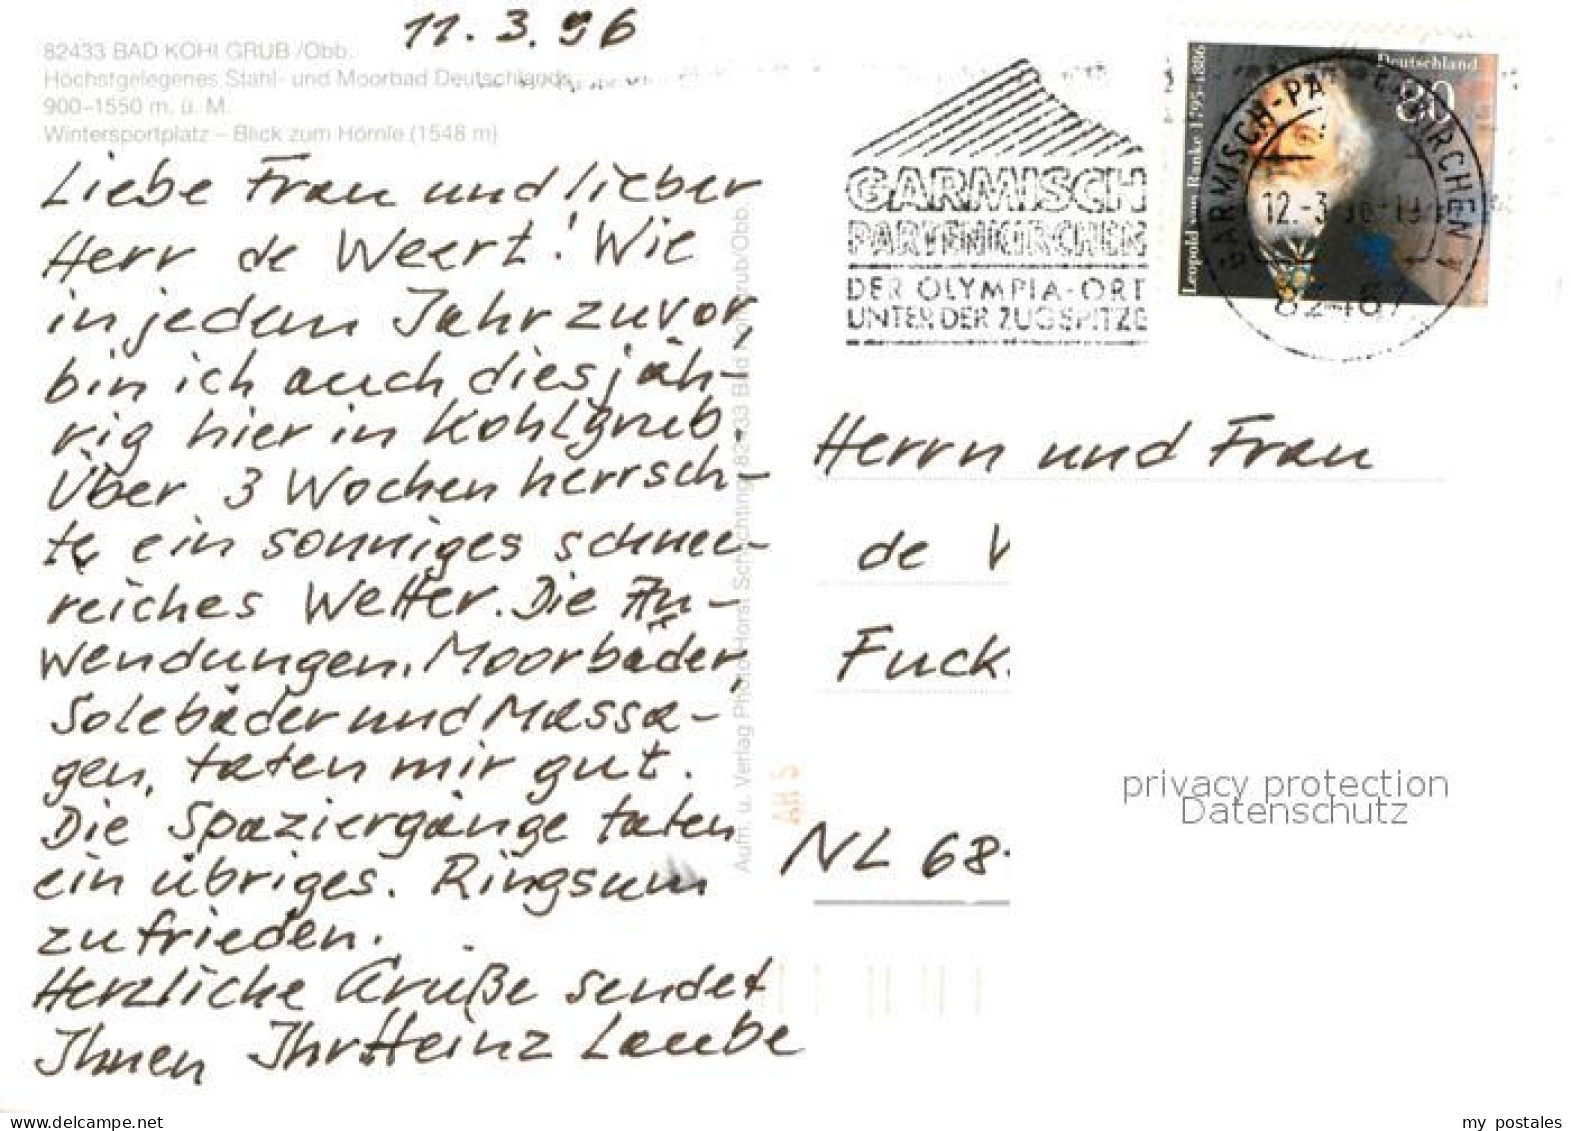 11.3.96
82433 BAD KOHLGRUB /Obb.
Höchstgelegenes Stahl- und Moorbad Deutschlands
900-1550 m. ü. M.
Wintersportplatz - Blick zum Hörnle (1548 m)
Liebe Frau und lieber
Herr de Weert! Wie
in jedem Jahr zuvor,
bin ich auch diesjäh-
rig hier in Kohlgrub
Über 3 Wochen herrsch-
te ein sonniges schnee-
reiches Wetter. Die An-
wendungen, Moorbäder,
Solebäder und Massa-
gen, taten mir gut.
Die Spaziergänge taten
ein übriges. Ringsum
zufrieden.
Herzliche Grüße sendet
Ihnen Ihr Heinz Laube
Aufn. u. Verlag Photo Horst Schlichting, 82433 Bad Kohlgrub/Obb.
GARMISCH
PARTENKIRCHEN
DER OLYMPIA-ORT
UNTER DER ZUGSPITZE
Leopold von Ranke 1795-1886
Deutschland
80
GARMISCH-PARTENKIRCHEN 1
12.-3.96-19
82467
Herrn und Frau
de
Fuck
NL 68
AH S
privacy protection
Datenschutz
my postales